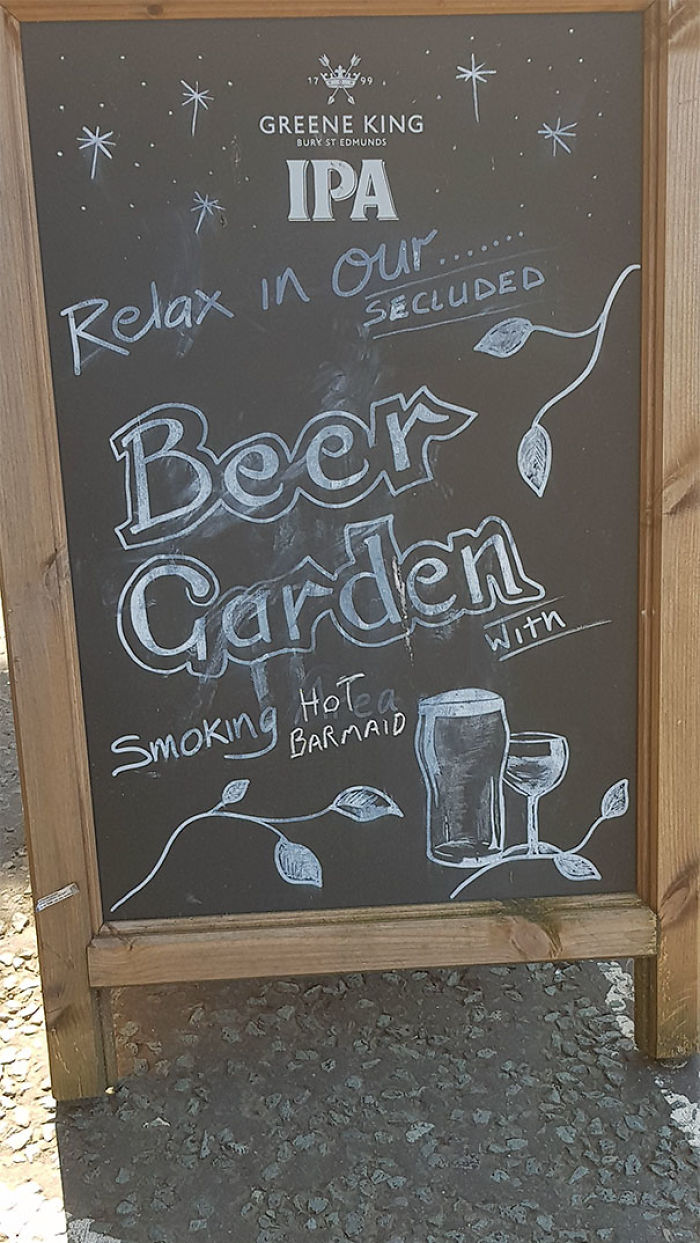 17 99
GREENE KING
BURY ST EDMUNDS
IPA
Relax in our.......
SECLUDED
Beer
Garden
With
Smoking HoT
BARMAID